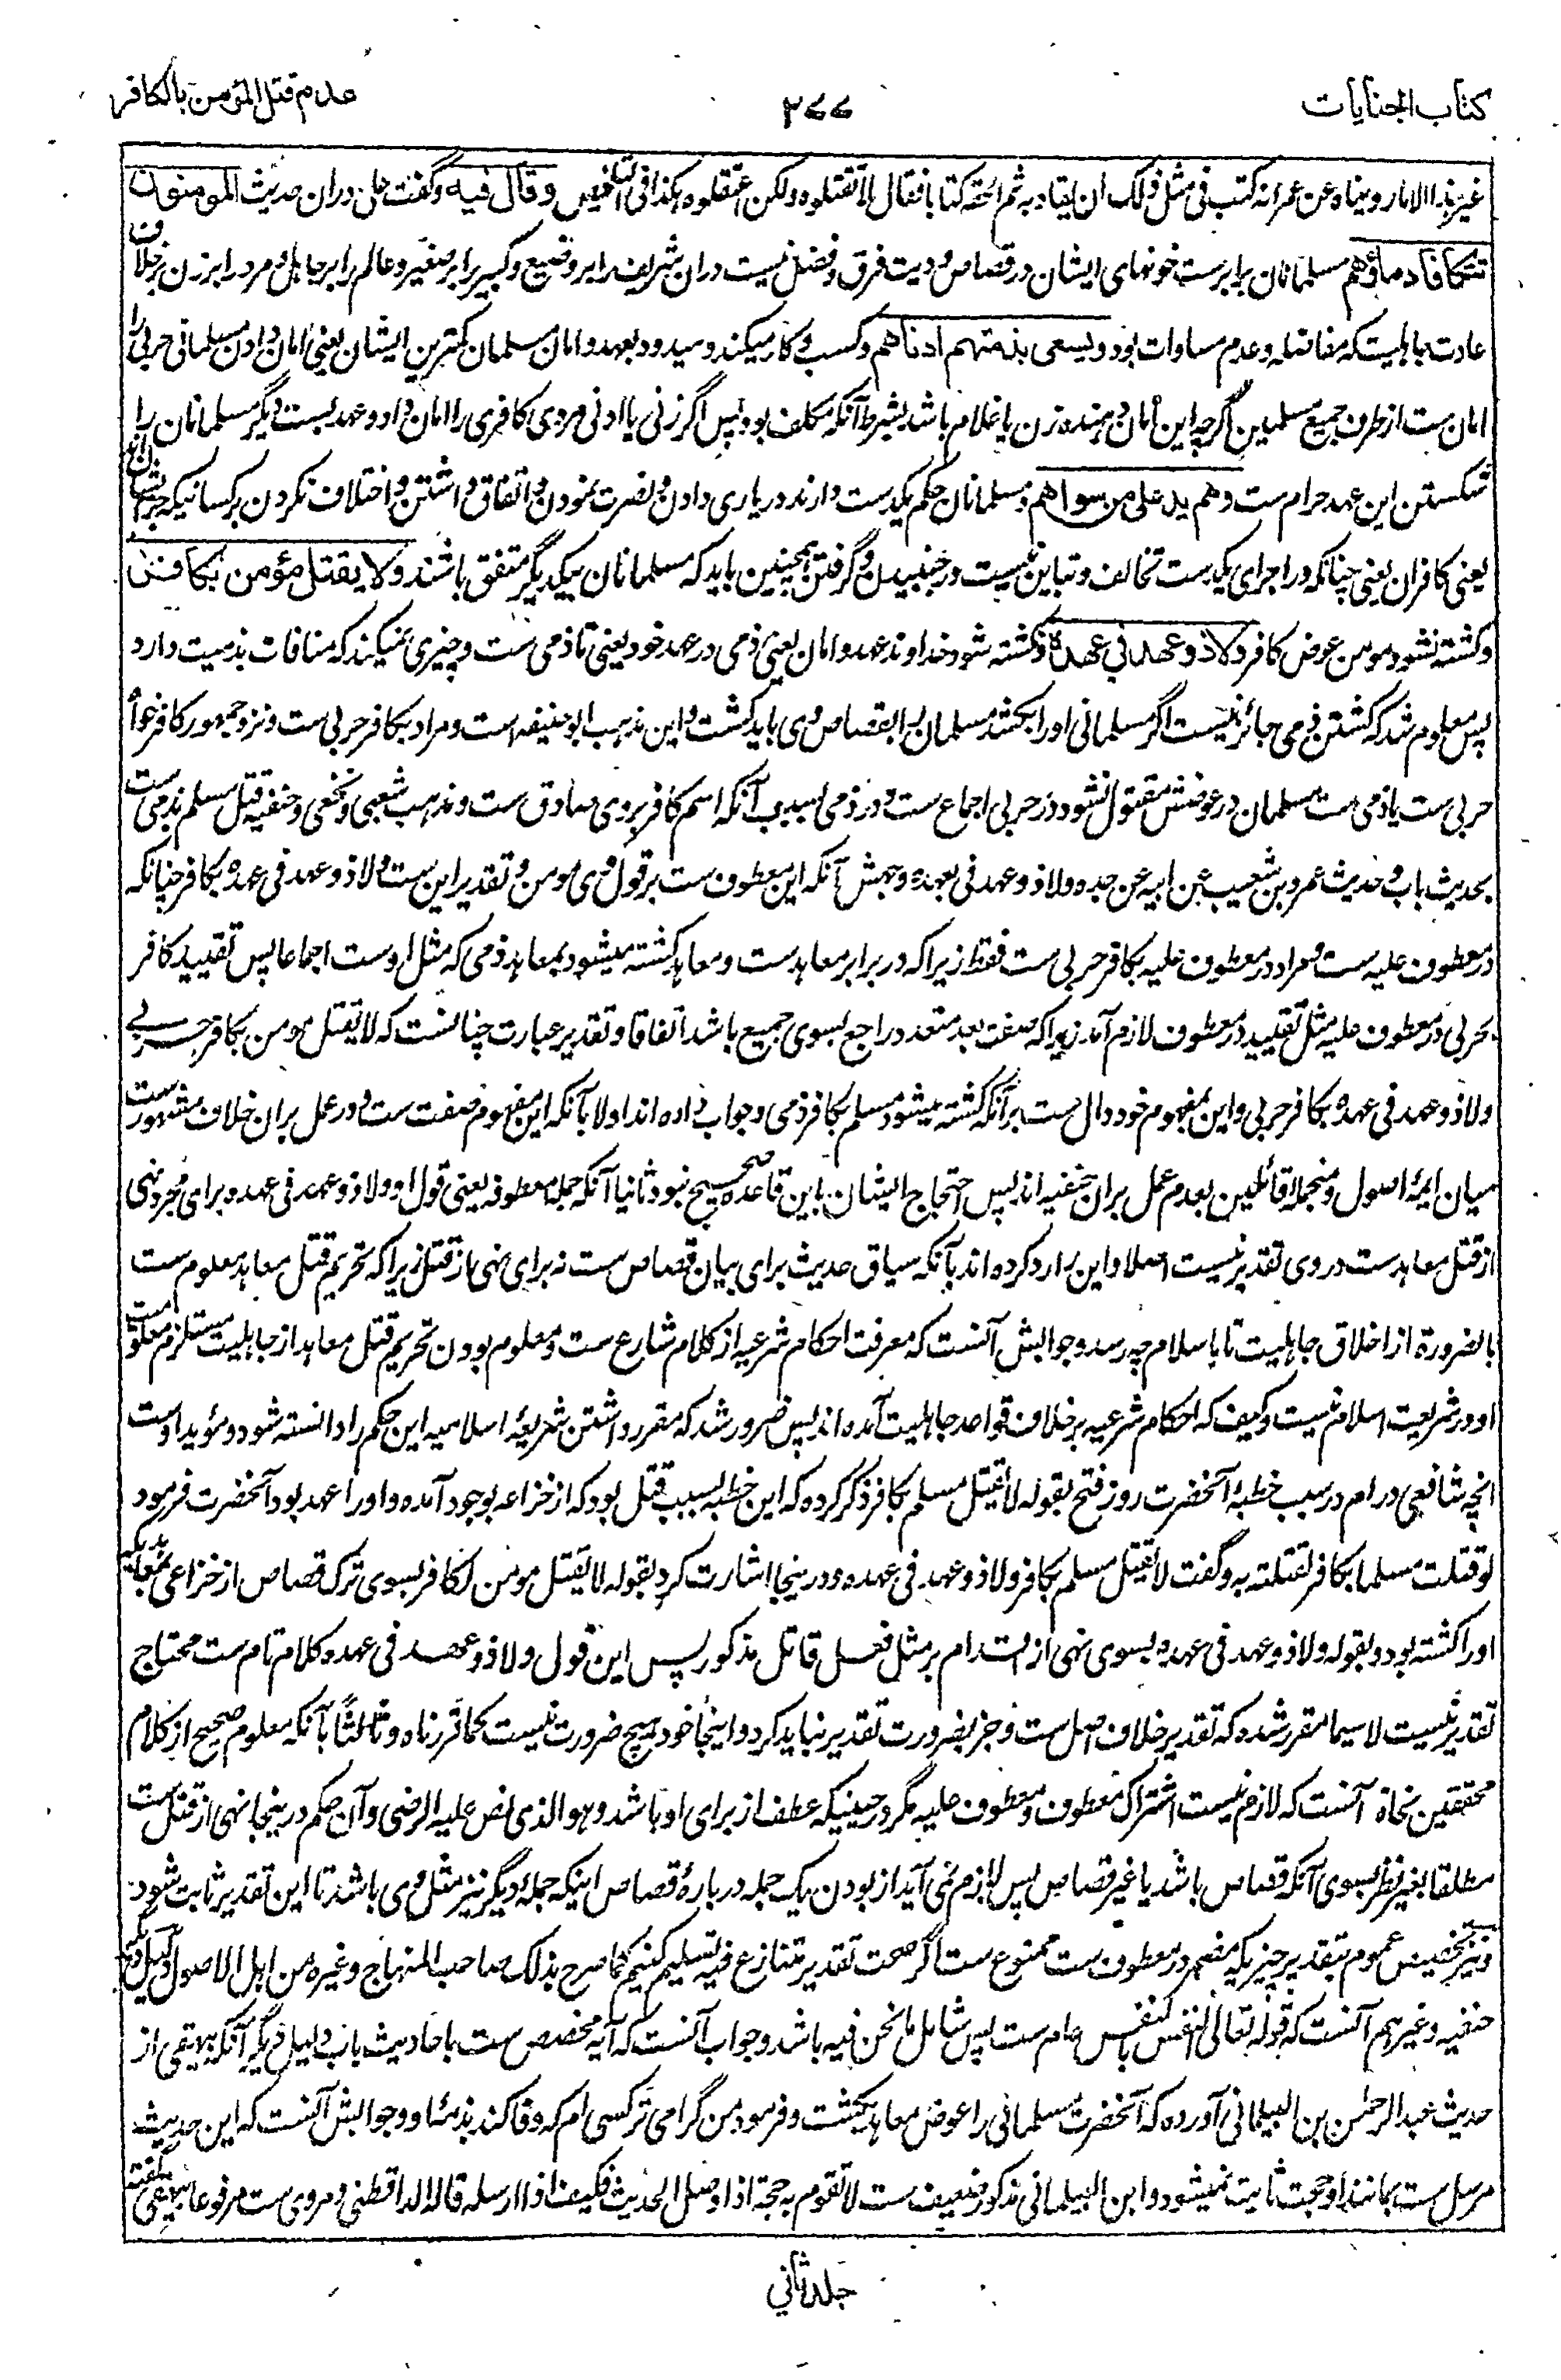 کتاب الجنایات
۳۷۷
عدم قتل المؤمن بالکافر
غیر هذا الامار ویناه عن عمر انه کتب فی مثل ذلک ان یقاد به ثم الحقه کتابا فقال لا تقتلوه ولکن اعتقلوه هکذا فی التلخیص وقال فیه وگفت علی دران حدیث المومنون
تتکافأ دماؤهم مسلمانان برابرست خونهای ایشان در قصاص و دیت فرق و فضل نیست دران شریف را بر وضیع و کبیر را بر صغیر و عالم را بر جاهل و مرد را بر زن برخلاف
عادت جاهلیت که مفاضله و عدم مساوات بود ویسعی بذمتهم ادناهم و کسب و کار میکند و میدود بعهد و امان مسلمان کمترین ایشان یعنی امان دادن مسلمانی حربی را
امان ست از طرف جمیع مسلمین گرچه این امان دهنده زن یا غلام باشد بشرط آنکه مکلف بود پس اگر زنی یا ادنی مردی کافری را امان داد و عهد بست دیگر مسلمانان را
شکستن این عهد حرام ست وهم ید علی من سواهم و مسلمانان حکم یکدست دارند در یاری دادن و نصرت نمودن و اتفاق داشتن و اختلاف نکردن بر کسانیکه جز ایشان اند
یعنی کافران یعنی چنانکه در اجرای یکدست تخالف و تباین نیست در جنبیدن و گرفتن همچنین باید که مسلمانان بیکدیگر متفق باشند ولا یقتل مؤمن بکافر
و کشته نشود مومن عوض کافر ولا ذو عهد فی عهده و کشته شود خداوند عهد و امان یعنی ذمی در عهد خود یعنی تا ذمی ست و چیزی نمیکند که منافات بذمیت دارد
پس معلوم شد که کشتن ذمی جائز نیست اگر مسلمانی او را بکشد مسلمان را بقصاص وی باید کشت و این مذهب ابو حنیفه است و مراد بکافر حربی ست و نزد جمهور کافر خواه
حربی ست یا ذمی ست مسلمان در عوضش مقتول نشود در حربی اجماع ست و در ذمی بسبب آنکه اسم کافر بر وی صادق ست و مذهب شعبی و نخعی و حنفیه قتل مسلم بذمی ست
بحدیث باب و حدیث عمرو بن شعیب عن ابیه عن جده ولا ذو عهد فی بعهده وجهش آنکه این معطوف ست بر قول وی مومن و تقدیر این ست ولا ذو عهد فی عهده بکافر چنانکه
در معطوف علیه ست و مراد در معطوف علیه بکافر حربی ست فقط زیرا که در برابر معاهدست و معاهد کشته میشود بمعاهد ذمی که مثل اوست اجماعا پس تقیید کافر
بحربی در معطوف علیه مثل تقیید در معطوف لازم آمد زیرا که صفت بعد متعدد راجع بسوی جمیع باشد اتفاقا و تقدیر عبارت چنانست که لا یقتل مومن بکافر حربی
ولا ذو عهد فی عهده بکافر حربی و این بمفهوم خود دال ست بر آنکه کشته میشود مسلم بکافر ذمی و جواب داده اند اولا بآنکه این مفهوم صفت ست و در عمل بران خلاف مشهورست
میان ایمهٔ اصول و منجمله قائلین بعدم عمل بران حنفیه اند پس احتجاج ایشان باین قاعده صحیح نبود ثانیا آنکه جمله معطوفه یعنی قول او ولا ذو عهد فی عهده برای مجرد نهی
از قتل معاهدست در وی تقدیر نیست اصلا و این را رد کرده اند بآنکه سیاق حدیث برای بیان قصاص ست نه برای نهی از قتل زیرا که تحریم قتل معاهد معلوم ست
بالضرورة از اخلاق جاهلیت تا باسلام چه رسد و جوابش آنست که معرفت احکام شرعیه از کلام شارع ست و معلوم بودن تحریم قتل معاهد از جاهلیت مستلزم معلومیت
او در شریعت اسلام نیست و کیف که احکام شرعیه برخلاف قواعد جاهلیت آمده اند پس ضرور شد که مقرر داشتن شریعهٔ اسلامیه این حکم را دانسته شود و مؤید اوست
انچه شافعی در ام در سبب خطبهٔ آنحضرت روز فتح بقوله لا یقتل مسلم بکافر ذکر کرده که این خطبه بسبب قتل بود که از خزاعه بوجود آمده و او را عهد بود آنحضرت فرمود
لو قتلت مسلما بکافر لقتلته به و گفت لا یقتل مسلم بکافر ولا ذو عهد فی عهده و درینجا اشارت کرد بقوله لا یقتل مومن بکافر بسوی ترک قصاص از خزاعی بمعاهدیکه
او را کشته بود و بقوله ولا ذو عهد فی عهده بسوی نهی از اقدام بر مثل فعل قاتل مذکور پس این قول ولا ذو عهد فی عهده کلام تام ست محتاج
تقدیر نیست لاسیما مقرر شده که تقدیر خلاف اصل ست و جز بضرورت تقدیر نباید کرد و اینجا خود هیچ ضرورت نیست کما قررناه و ثالثًا بآنکه معلوم صحیح از کلام
محققین نحاة آنست که لازم نیست اشتراک معطوف و معطوف علیه مگر در حینیکه عطف از برای او باشد وهو الذی نص علیه الرضی و آن حکم درینجا نهی از قتل ست
مطلقا بغیر نظر بسوی آنکه قصاص باشد یا غیر قصاص پس لازم نمی آید از بودن یک جمله دربارهٔ قصاص اینکه جملهٔ دیگر نیز مثل وی باشد تا این تقدیر ثابت شود
و نیز تخصیص عموم بتقدیر چیزیکه مضمر در معطوف ست ممنوع ست اگر صحت تقدیر متنازع فیه تسلیم کنیم کما صرح بذلک صاحب المنهاج وغیره من اهل الاصول و دلیل دیگر
حنفیه و غیرهم آنست که قوله تعالی النفس بالنفس عام ست پس شامل ما نحن فیه باشد و جواب آنست که آیه مخصص ست باحادیث باب دلیل دیگر آنکه بیهقی از
حدیث عبد الرحمن بن البیلمانی آورده که آنحضرت مسلمانی را عوض معاهد بکشت و فرمود من گرامی تر کسی ام که وفا کند بذمهٔ او و جوابش آنست که این حدیث
مرسل ست بمانند او حجت ثابت نمیشود و ابن البیلمانی مذکور ضعیف ست لا تقوم به حجة اذا وصل الحدیث فکیف اذا ارسله قاله الدارقطنی و مروی ست مرفوعا بیهقی گفته
جلد ثانی